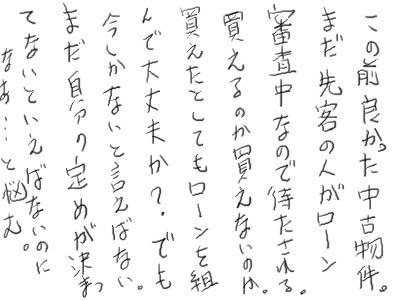 この前良かった中古物件。
まだ先客の人がローン
審査中なので待たされる。
買えるのか買えないのか。
買えたとしてもローンを組
んで大丈夫か?・でも
今しかないと言えばない。
まだ自分の定めが決まっ
てないといえばないのに
なあ…と悩む。